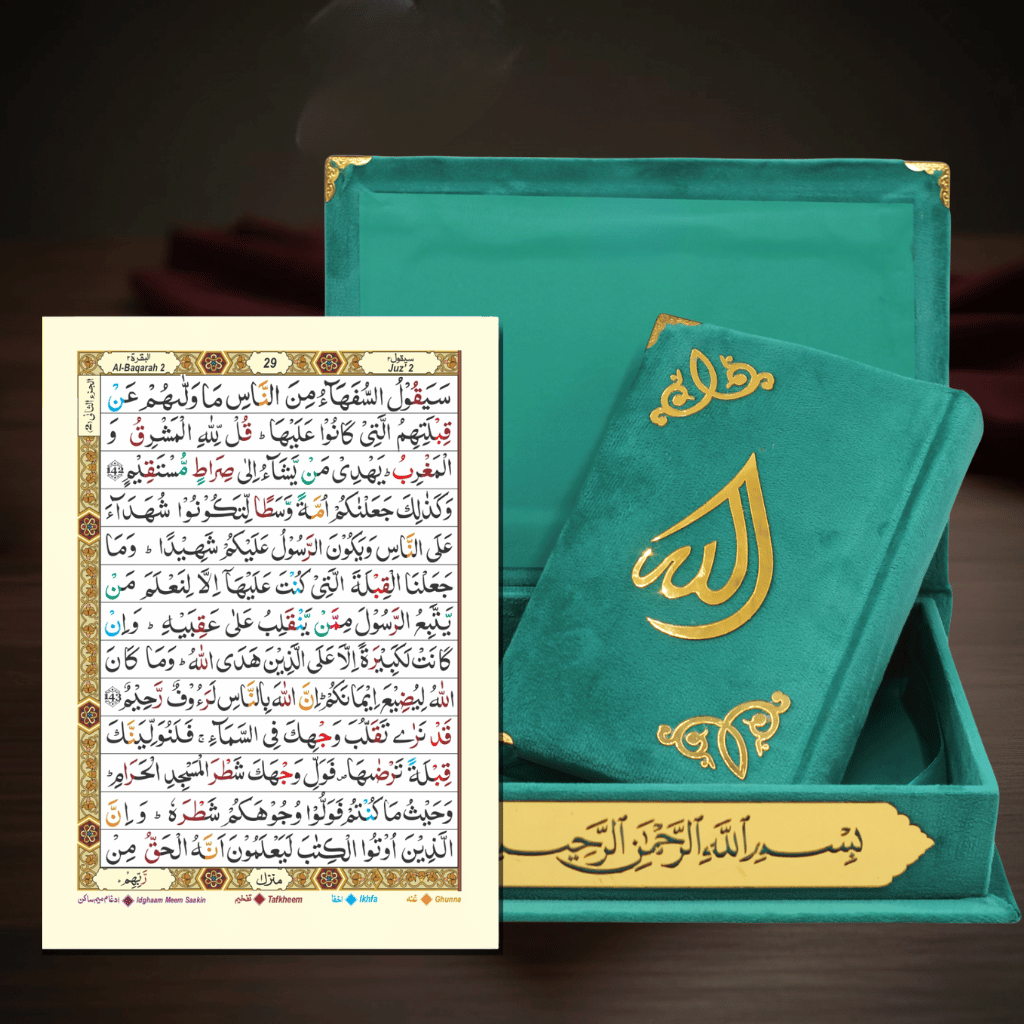 البقرة ٢
Al-Baqarah 2
29
سيقول ٢
Juz' 2
الجزء الثانی (2)
سَيَقُوْلُ السُّفَهَآءُ مِنَ النَّاسِ مَا وَلّٰىهُمْ عَنْ
قِبْلَتِهِمُ الَّتِىْ كَانُوْا عَلَيْهَا ؕ قُلْ لِّلّٰهِ الْمَشْرِقُ وَ
الْمَغْرِبُ ؕ يَهْدِىْ مَنْ يَّشَآءُ اِلٰى صِرَاطٍ مُّسْتَقِيْمٍ 142
وَكَذٰلِكَ جَعَلْنٰكُمْ اُمَّةً وَّسَطًا لِّتَكُوْنُوْا شُهَدَآءَ
عَلَى النَّاسِ وَيَكُوْنَ الرَّسُوْلُ عَلَيْكُمْ شَهِيْدًا ؕ وَمَا
جَعَلْنَا الْقِبْلَةَ الَّتِىْ كُنْتَ عَلَيْهَآ اِلَّا لِنَعْلَمَ مَنْ
يَّتَّبِعُ الرَّسُوْلَ مِمَّنْ يَّنْقَلِبُ عَلٰى عَقِبَيْهِ ؕ وَاِنْ
كَانَتْ لَكَبِيْرَةً اِلَّا عَلَى الَّذِيْنَ هَدَى اللّٰهُ ؕ وَمَا كَانَ
اللّٰهُ لِيُضِيْعَ اِيْمَانَكُمْ ؕ اِنَّ اللّٰهَ بِالنَّاسِ لَرَءُوْفٌ رَّحِيْمٌ 143
قَدْ نَرٰى تَقَلُّبَ وَجْهِكَ فِى السَّمَآءِ ۚ فَلَنُوَلِّيَنَّكَ
قِبْلَةً تَرْضٰىهَا ۪ فَوَلِّ وَجْهَكَ شَطْرَ الْمَسْجِدِ الْحَرَامِ ؕ
وَحَيْثُ مَا كُنْتُمْ فَوَلُّوْا وُجُوْهَكُمْ شَطْرَهٗ ؕ وَ اِنَّ
الَّذِيْنَ اُوْتُوا الْكِتٰبَ لَيَعْلَمُوْنَ اَنَّهُ الْحَقُّ مِنْ
رَّبِّهِمْ ؕ
منزل
ادغام میم ساکن Idghaam Meem Saakin
تفخیم Tafkheem
اخفا Ikhfa
غنه Ghunna
الله
بِسْمِ ٱللَّهِ ٱلرَّحْمَٰنِ ٱلرَّحِي